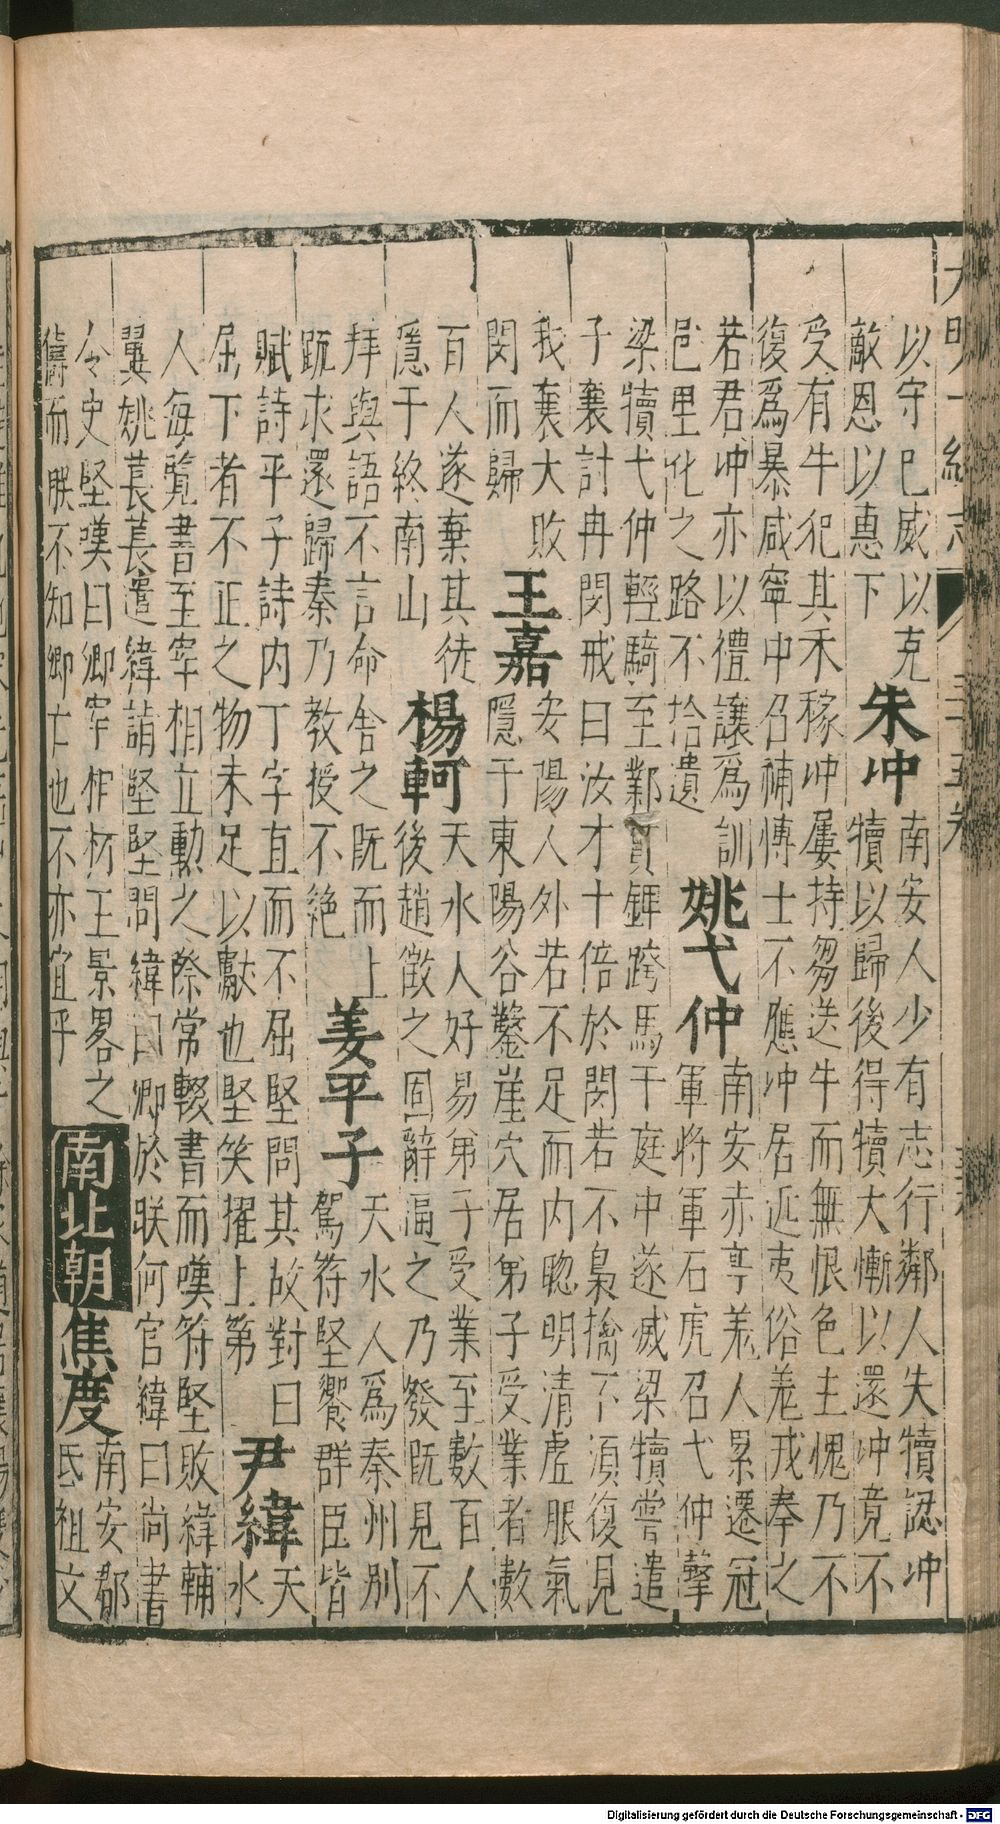 大明一統志 三十五卷
以守巳威以克
敵恩以惠下
朱冲
南安人少有志行鄰人失犢認冲
犢以歸後得犢大慚以還冲竟不
受有牛犯其禾稼冲屢持芻送牛而無恨色主愧乃不
復爲暴咸寧中召補博士不應冲居近夷俗羗戎奉之
若君冲亦以禮讓爲訓
邑里化之路不拾遺
姚弋仲
南安赤亭羗人累遷冠
軍將軍石虎召弋仲擊
梁犢弋仲輕騎至鄴貫鉀跨馬于庭中遂滅梁犢嘗遣
子襄討冉閔戒曰汝才十倍於閔若不梟擒不須復見
我襄大敗
閔而歸
王嘉
安陽人外若不足而内聦明清虚服氣
隱于東陽谷鑿崖穴居弟子受業者數
百人遂棄其徒
隱于終南山
楊軻
天水人好易弟子受業至數百人
後趙徵之固辭逼之乃發既見不
拜與語不言命舍之既而上
䟽求還歸秦乃教授不絶
姜平子
天水人爲秦州别
駕苻堅饗群臣皆
賦詩平子詩内丁字直而不屈堅問其故對曰
屈下者不正之物未足以獻也堅笑擢上第
尹緯
天
水
人每覽書至宰相立勳之際常輟書而嘆苻堅敗緯輔
翼姚萇萇遣緯詣堅堅問緯曰卿於朕何官緯曰尚書
令史堅嘆曰卿宰相材王景畧之
儔而朕不知卿亡也不亦宜乎
南北朝
焦度
南安郡
氐祖文
Digitalisierung gefördert durch die Deutsche Forschungsgemeinschaft - DFG